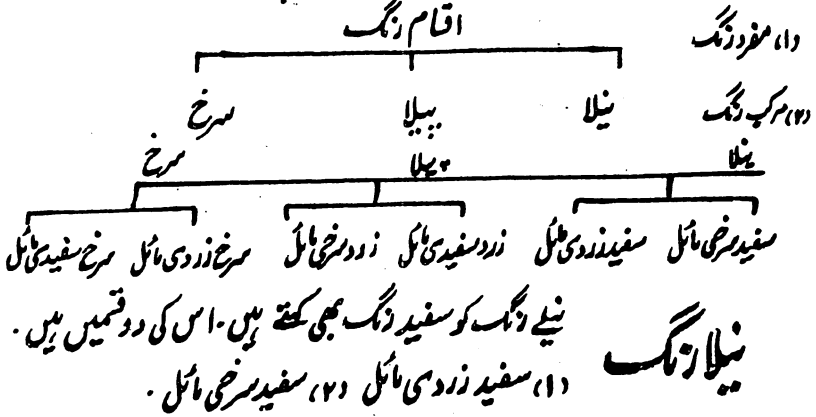 اقسام رنگ
(۱) مفرد رنگ
نیلا پیلا سرخ
(۲) مرکب رنگ
نیلا پیلا سرخ
سفید سرخی مائل سفید زردی مائل زرد سفیدی مائل زرد سرخی مائل سرخ زردی مائل سرخ سفیدی مائل
نیلا رنگ
نیلے رنگ کو سفید رنگ بھی کہتے ہیں۔ اس کی دو قسمیں ہیں۔
(۱) سفید زردی مائل (۲) سفید سرخی مائل۔